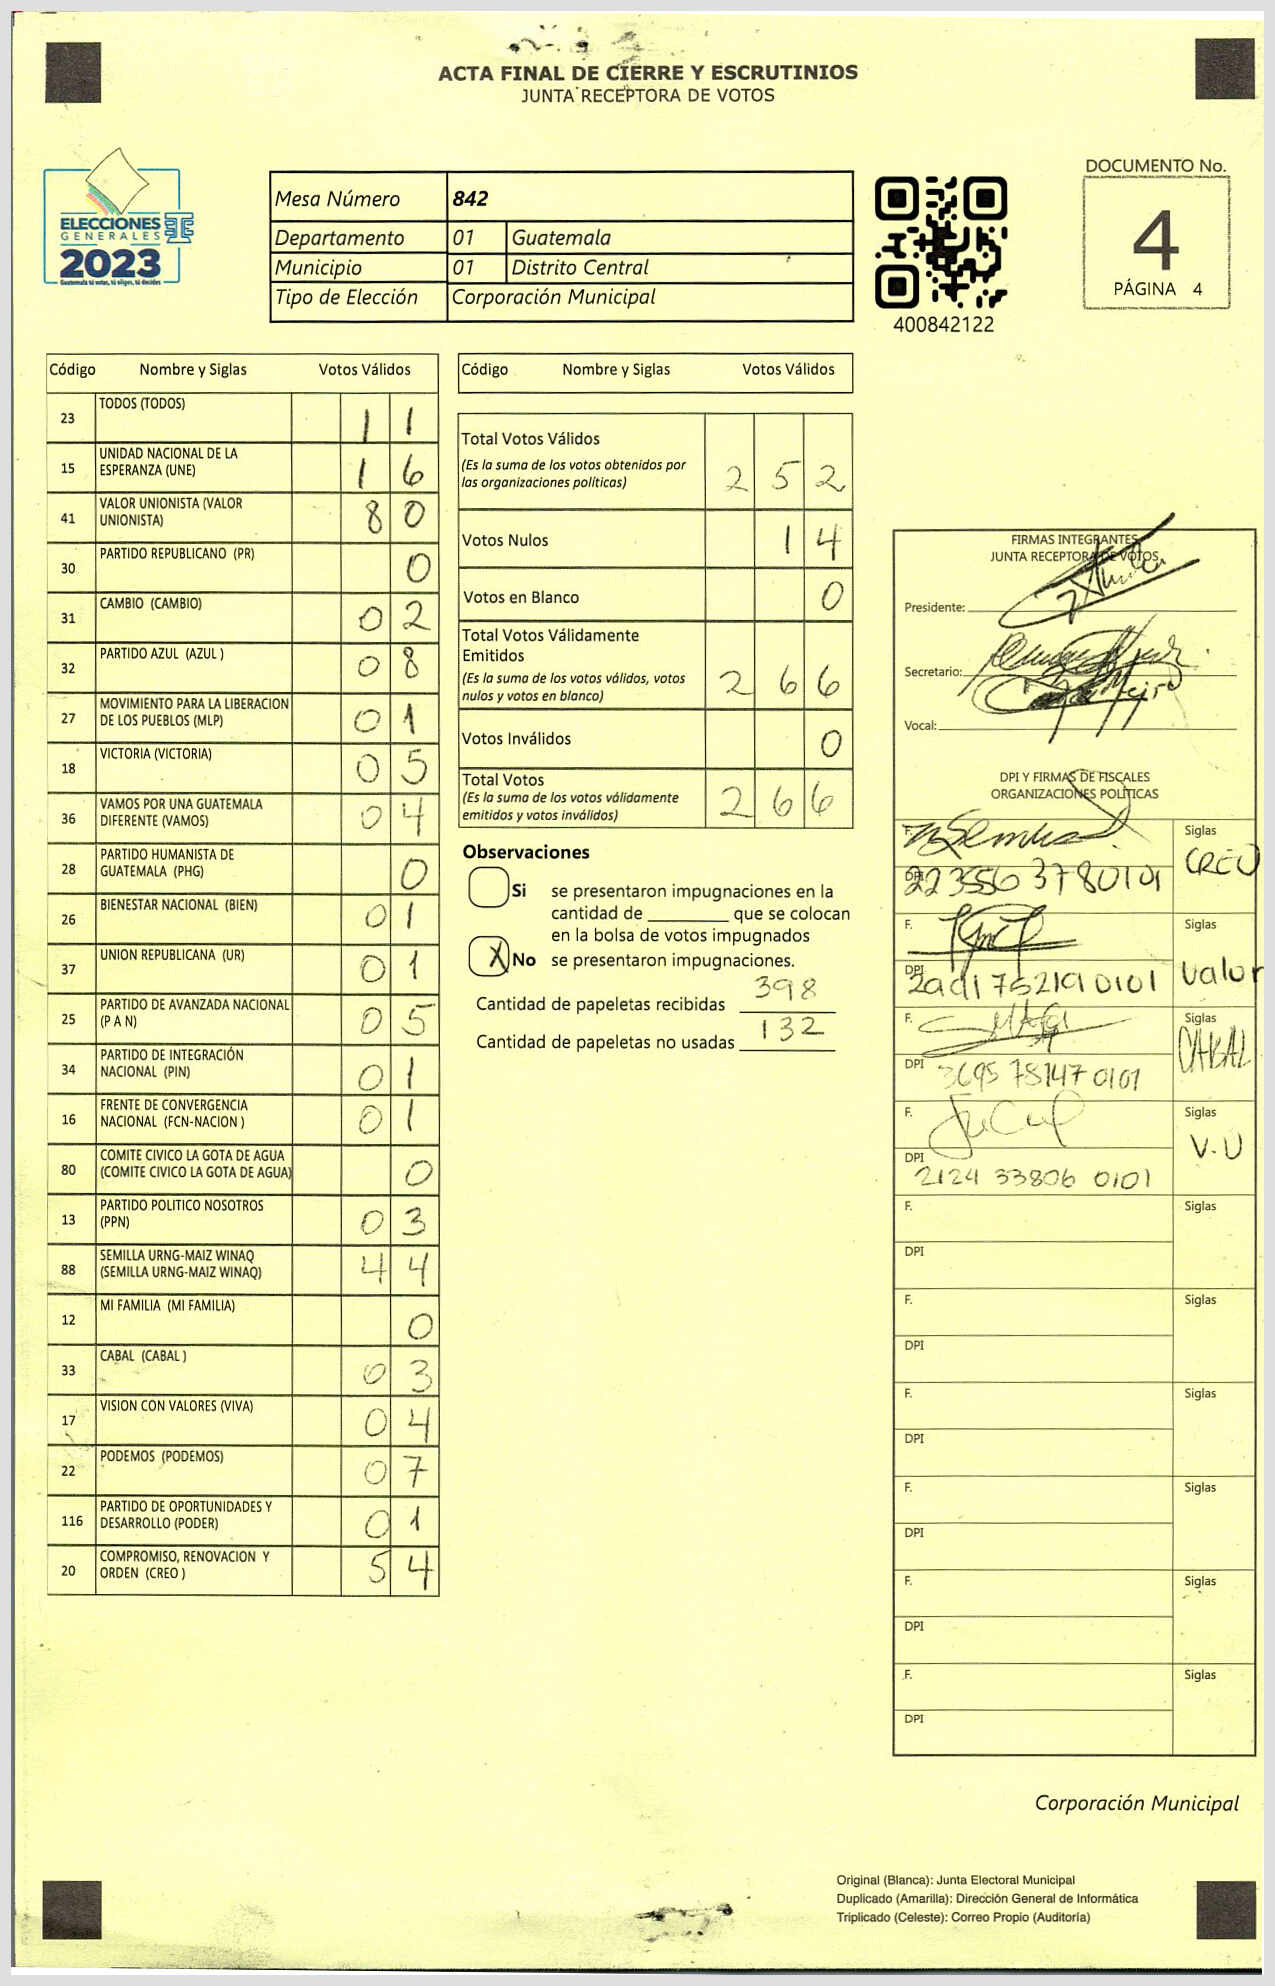 ACTA FINAL DE CIERRE Y ESCRUTINIOS
JUNTA RECEPTORA DE VOTOS
ELECCIONES
GENERALES
2023
Guatemala tú votas, tú eliges, tú decides
Mesa Número 842
Departamento 01 Guatemala
Municipio 01 Distrito Central
Tipo de Elección Corporación Municipal
400842122
DOCUMENTO No.
4
PÁGINA 4
Código Nombre y Siglas Votos Válidos
23 TODOS (TODOS) 1 1
15 UNIDAD NACIONAL DE LA
ESPERANZA (UNE) 1 6
41 VALOR UNIONISTA (VALOR
UNIONISTA) 8 0
30 PARTIDO REPUBLICANO (PR) 0
31 CAMBIO (CAMBIO) 0 2
32 PARTIDO AZUL (AZUL ) 0 8
27 MOVIMIENTO PARA LA LIBERACION
DE LOS PUEBLOS (MLP) 0 1
18 VICTORIA (VICTORIA) 0 5
36 VAMOS POR UNA GUATEMALA
DIFERENTE (VAMOS) 0 4
28 PARTIDO HUMANISTA DE
GUATEMALA (PHG) 0
26 BIENESTAR NACIONAL (BIEN) 0 1
37 UNION REPUBLICANA (UR) 0 1
25 PARTIDO DE AVANZADA NACIONAL
(P A N) 0 5
34 PARTIDO DE INTEGRACIÓN
NACIONAL (PIN) 0 1
16 FRENTE DE CONVERGENCIA
NACIONAL (FCN-NACION ) 0 1
80 COMITE CIVICO LA GOTA DE AGUA
(COMITE CIVICO LA GOTA DE AGUA) 0
13 PARTIDO POLITICO NOSOTROS
(PPN) 0 3
88 SEMILLA URNG-MAIZ WINAQ
(SEMILLA URNG-MAIZ WINAQ) 4 4
12 MI FAMILIA (MI FAMILIA) 0
33 CABAL (CABAL ) 0 3
17 VISION CON VALORES (VIVA) 0 4
22 PODEMOS (PODEMOS) 0 7
116 PARTIDO DE OPORTUNIDADES Y
DESARROLLO (PODER) 0 1
20 COMPROMISO, RENOVACION Y
ORDEN (CREO ) 5 4
Código Nombre y Siglas Votos Válidos
Total Votos Válidos
(Es la suma de los votos obtenidos por
las organizaciones políticas) 2 5 2
Votos Nulos 1 4
Votos en Blanco 0
Total Votos Válidamente
Emitidos
(Es la suma de los votos válidos, votos
nulos y votos en blanco) 2 6 6
Votos Inválidos 0
Total Votos
(Es la suma de los votos válidamente
emitidos y votos inválidos) 2 6 6
Observaciones
Si se presentaron impugnaciones en la
cantidad de ________ que se colocan
en la bolsa de votos impugnados
X No se presentaron impugnaciones.
Cantidad de papeletas recibidas 398
Cantidad de papeletas no usadas 132
FIRMAS INTEGRANTES
JUNTA RECEPTORA DE VOTOS
Presidente:
Secretario:
Vocal:
DPI Y FIRMAS DE FISCALES
ORGANIZACIONES POLÍTICAS
F. Siglas
CREO
DPI
F. Siglas
Valor
DPI
F. Siglas
CABAL
DPI 3695 78147 0101
F. Siglas
V.U
DPI
2124 33806 0101
F. Siglas
DPI
F. Siglas
DPI
F. Siglas
DPI
F. Siglas
DPI
F. Siglas
DPI
F. Siglas
DPI
Corporación Municipal
Original (Blanca): Junta Electoral Municipal
Duplicado (Amarilla): Dirección General de Informática
Triplicado (Celeste): Correo Propio (Auditoría)